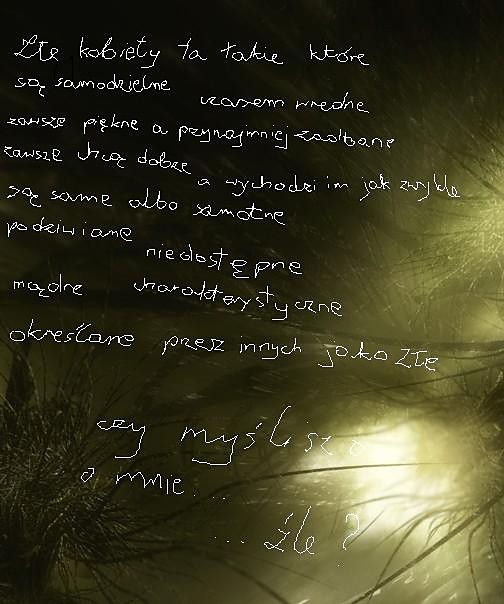 Złe kobiety ta takie które
są samodzielne czasem wredne
zawsze piękne a przynajmniej zadbane
zawsze chcą dobrze a wychodzi im jak zwykle
są same albo samotne
podziwiane niedostępne
mądre charakterystyczne
określane przez innych jako złe
czy myślisz
o mnie...
...źle?